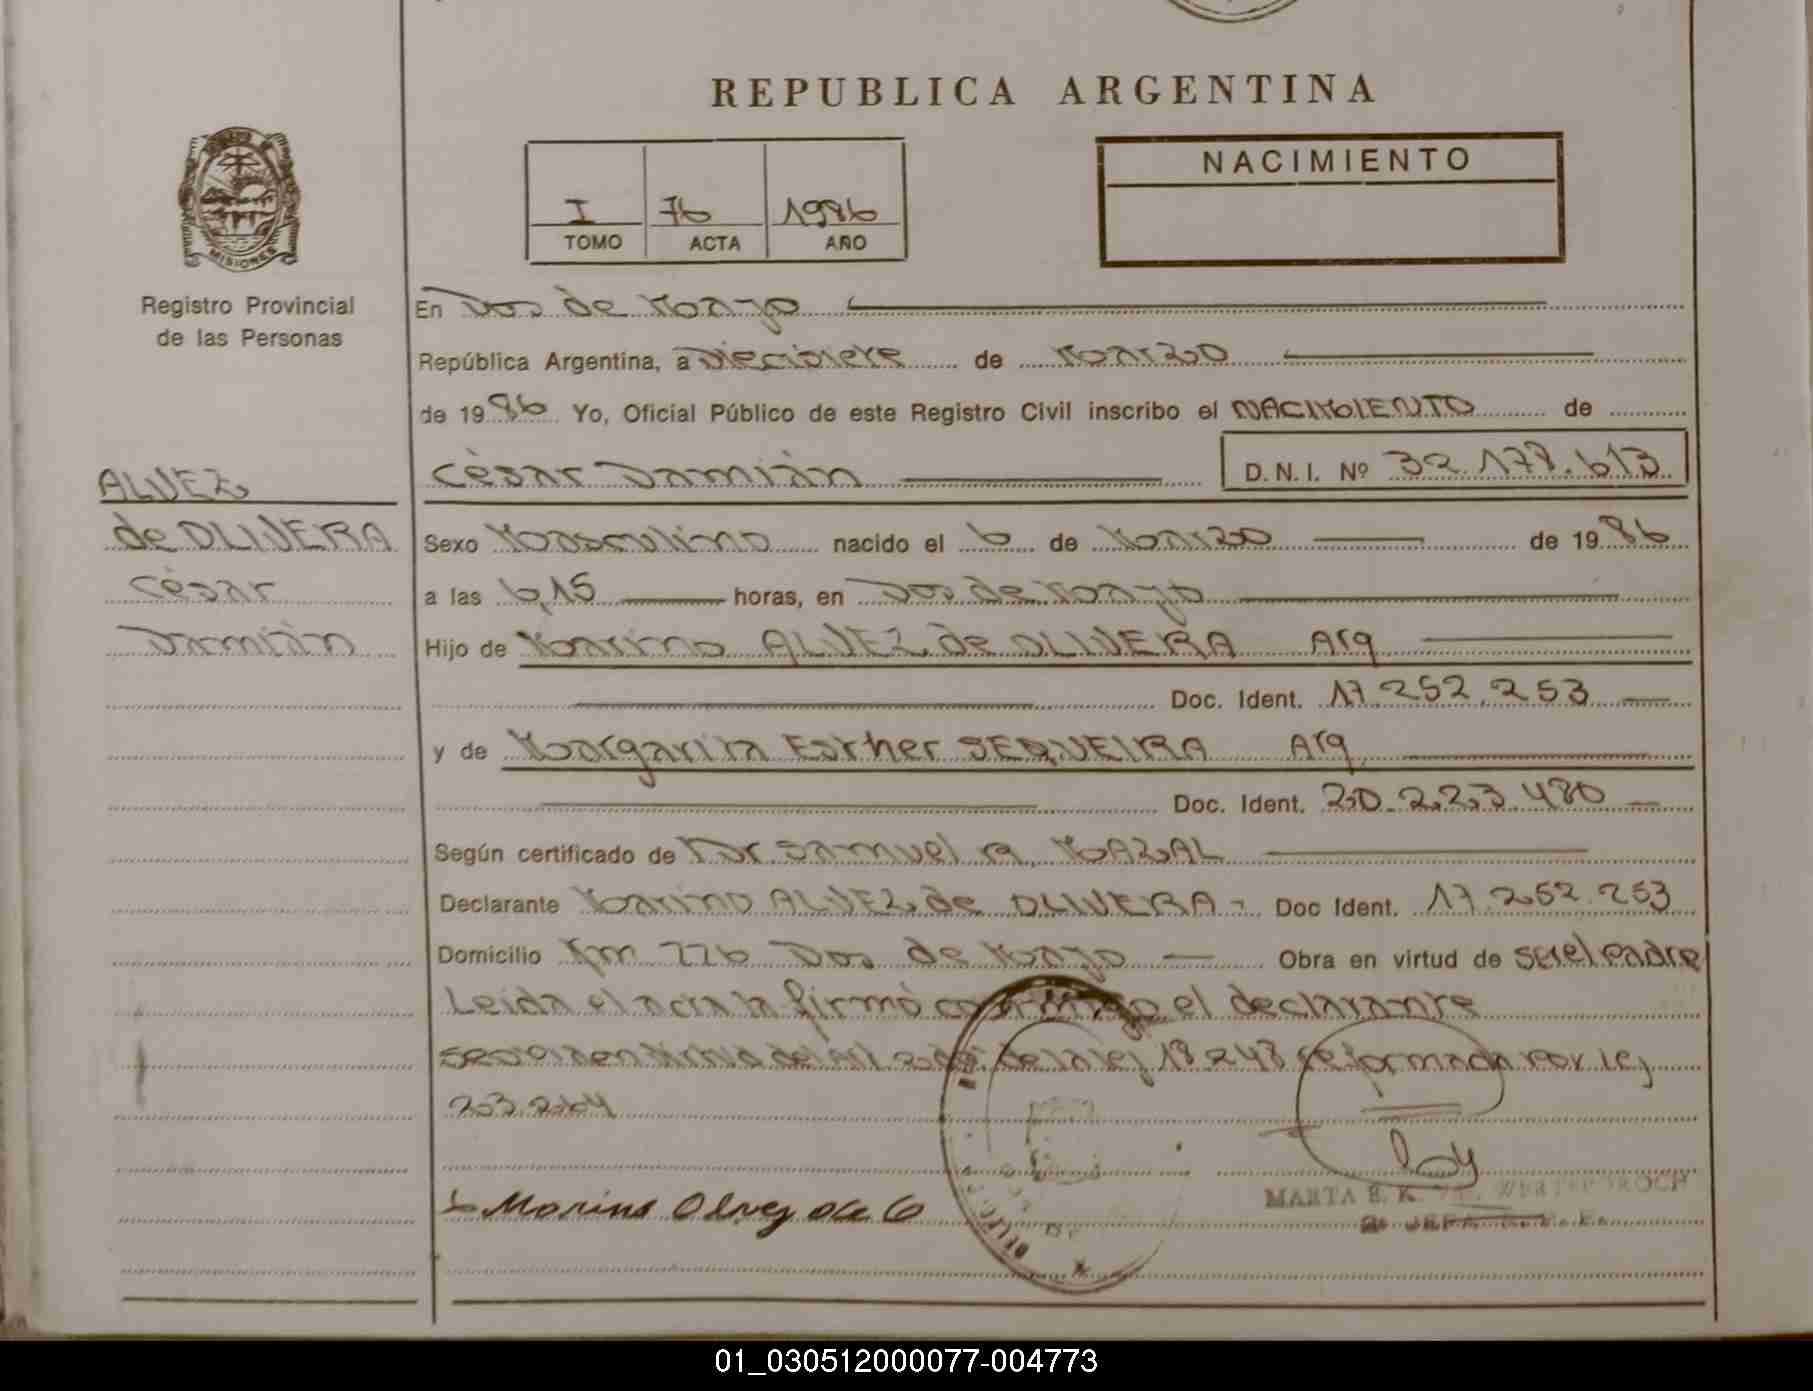 REPUBLICA ARGENTINA
MISIONES
Registro Provincial
de las Personas
I 76 1986
TOMO ACTA AÑO
NACIMIENTO
En Dos de Mayo
República Argentina, a Diecisiete de Marzo
de 1986 Yo, Oficial Público de este Registro Civil inscribo el NACIMIENTO de
César Damián D.N.I. Nº 32.178.613
ALVEZ
de OLIVERA
César
Damián
Sexo Masculino nacido el 6 de Marzo de 1986
a las 6,15 horas, en Dos de Mayo
Hijo de Marino ALVEZ de OLIVERA Arg
Doc. Ident. 17.252.253
y de Margarita Esther SEQUEIRA Arg
Doc. Ident. 20.223.480
Según certificado de Dr. Samuel A. MAZAL
Declarante Marino ALVEZ de OLIVERA - Doc Ident. 17.252.253
Domicilio Km 226 Dos de Mayo Obra en virtud de ser el padre
Leída el acta la firmó conmigo el declarante
del art. 2do. de la ley 18248 reformada por ley
23.264
Marino Alvez de O
MARTA E. K.
2º JEFA
01_030512000077-004773